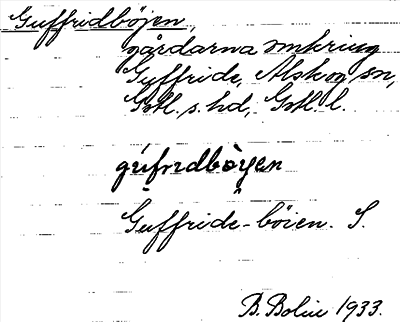 Guffridböjen,
gårdarna omkring
Guffride, Alskog sn,
Gotl. s. hd, Gotl. l.
gúfrıdbòyen
Guffride-böien. S.
B. Bolin 1933.